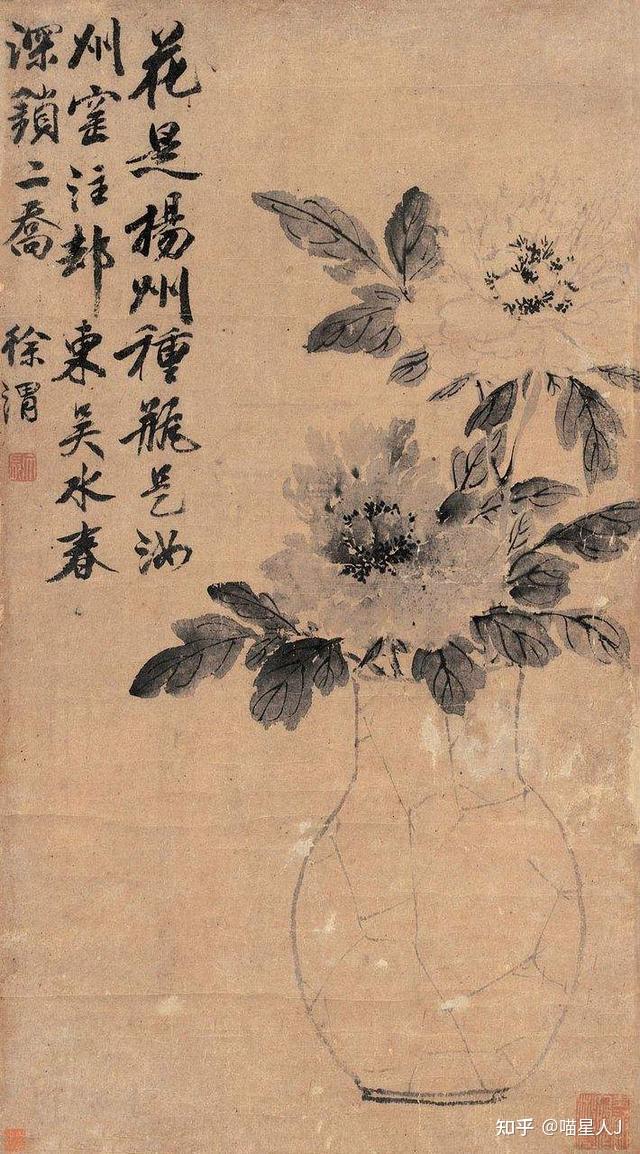 花是揚州種瓶是汝
州窑注却東吴水春
深鎖二喬
徐渭
知乎 @喵星人J